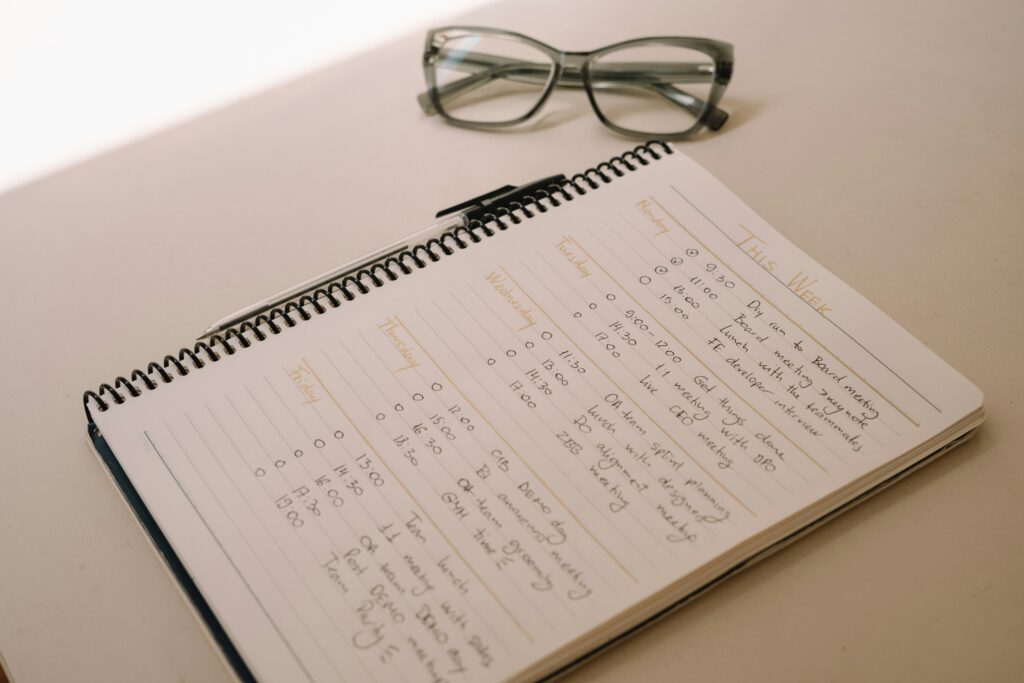 THIS WEEK
Monday
9:30 Dry run to Board meeting
11:00 Board meeting keynote
13:00 Lunch with the teammates
15:00 FE developer interview
Tuesday
9:00-12:00 Get things done
14.30 1:1 meeting with
17:00 Live CEO meeting
Wednesday
11:30 OA team sprint planning
13:00 Lunch with designers
14:30 PO alignment meetup
17:00 meeting
Thursday
12:00 DEMO day
15:00 BI awareness meeting
16:30 OA team grooming
18:30 GYM time
Friday
13:00 Team lunch
14:30 1:1 meeting with sales
16:00 OA team DEMO day
17:30 Post DEMO meeting
19:00 Team Party